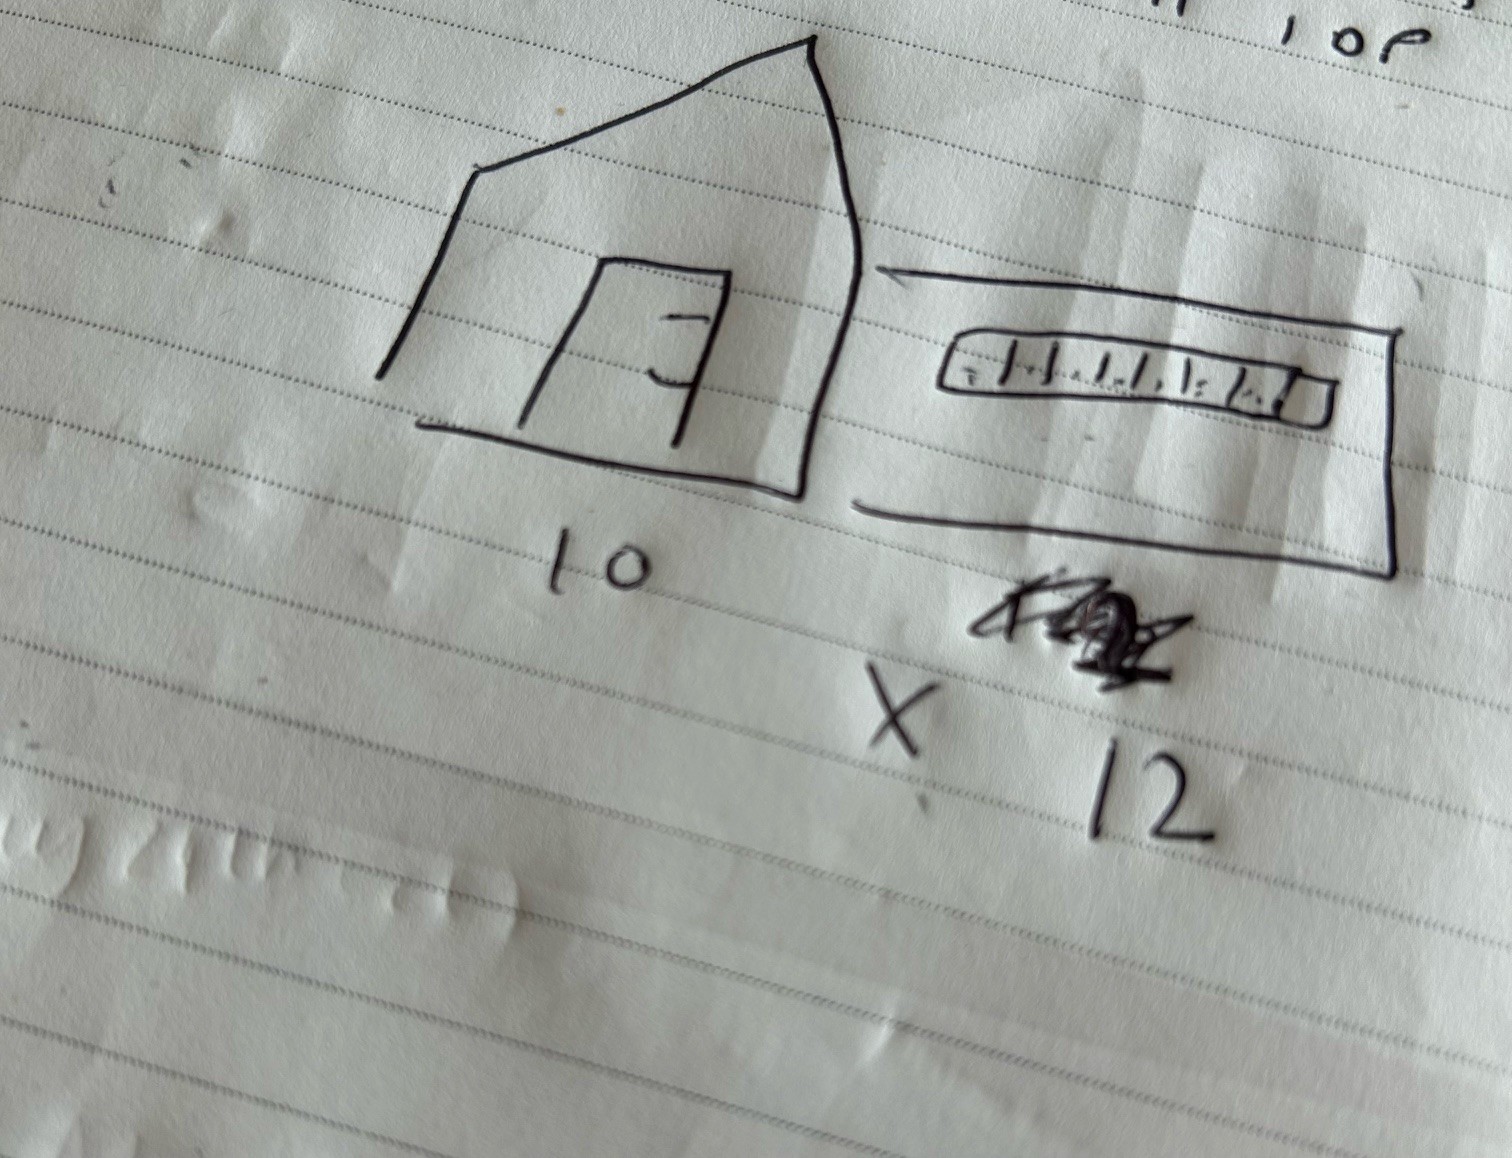 10P
10
X
12